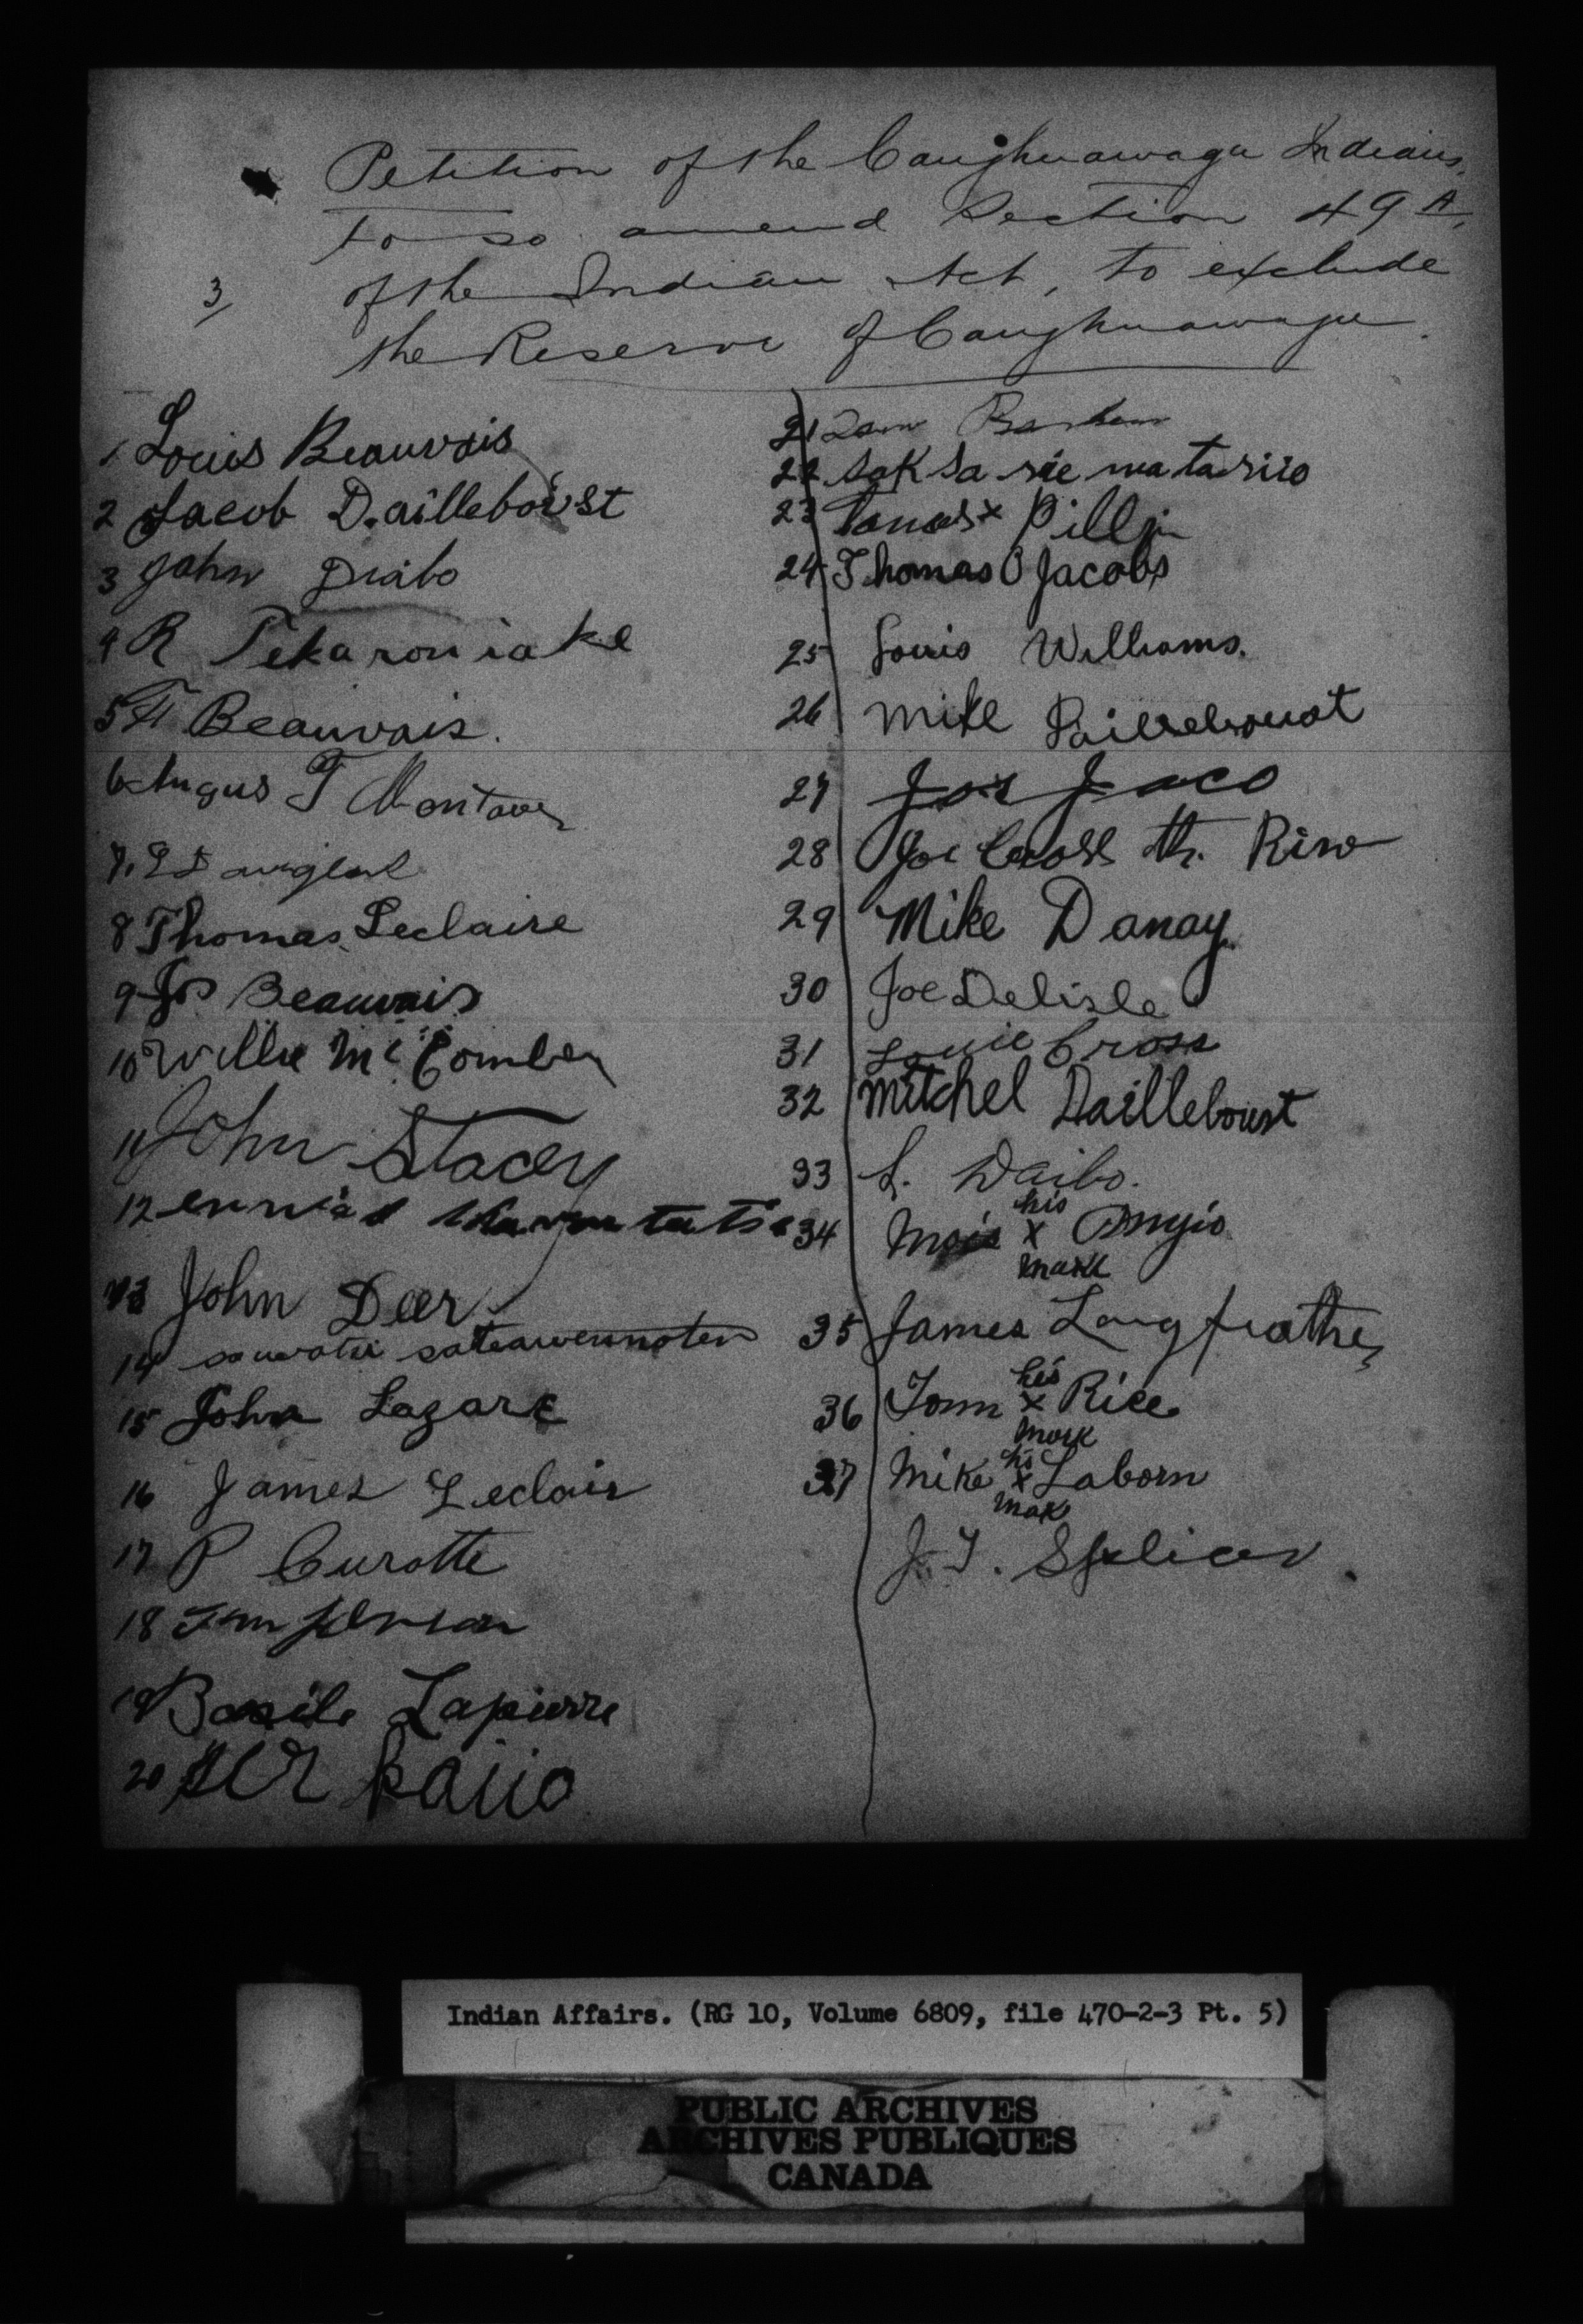 Petition of the Caughnawaga Indians,
to so amend Section 49 A,
3/ of the Indian Act, to exclude
the Reserve of Caughnawaga.
1 Louis Beauvais
2 Jacob D.ailleboust
3 John Diabo
4 R Tekaroniake
5 Beauvais.
6 Angus T Montour
7.
8 Thomas Leclaire
9 Jos Beauvais
10 Willie McComber
11 John Stacey
12
13 John Deer
14 sawatis
15 John Lazare
16 James Leclair
17 P Curotte
18
19 Basile Lapierre
20
21
22 Sak Sa rie wa ta riio
23 x
24 Thomas O Jacobs
25 Louis Williams.
26 Mike
27 Jos Jaco
28 Joe Cross the
29 Mike Danay
30 Joe Delisle
31 Louie Cross
32 Mitchel Dailleboust
33 L. Daibo.
his
34 x
mark
35 James Longfeather
his
36 Tom x Rice
mark
his
37 Mike x Laborn
mak
J. T. Splicer.
Indian Affairs. (RG 10, Volume 6809, file 470-2-3 Pt. 5)
PUBLIC ARCHIVES
ARCHIVES PUBLIQUES
CANADA